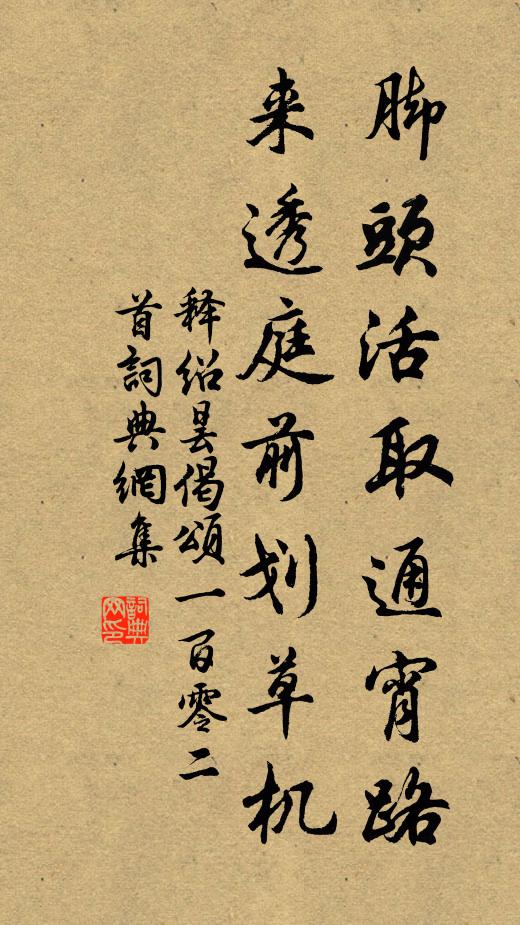 脚頭活取通宵路
来透庭前划草机
释绍昙偈頌一百零二
首詞典網集
詞典网印